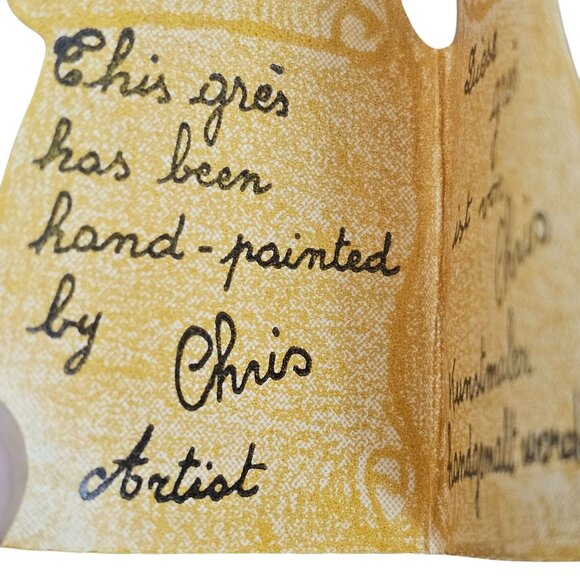 This grès
has been
hand-painted
by
Chris
Artist
ist von
Chris
Kunstmaler
handgemalt